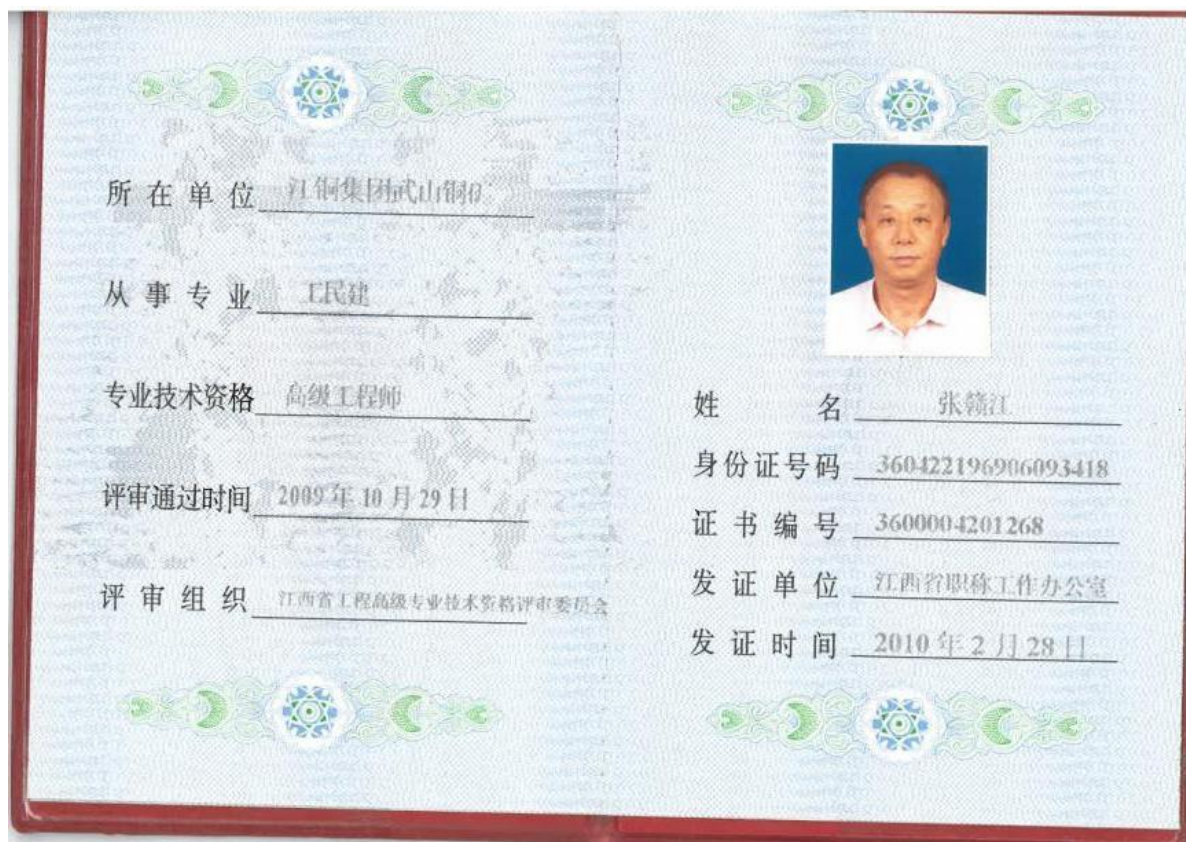 所在单位 江铜集团武山铜
从事专业 工民建
专业技术资格 高级工程师
评审通过时间 2009年10月29日
评审组织 江西省工程高级专业技术资格评审委员会
姓名 张赣江
身份证号码 360422196906093418
证书编号 3600004201268
发证单位 江西省职称工作办公室
发证时间 2010年2月28日